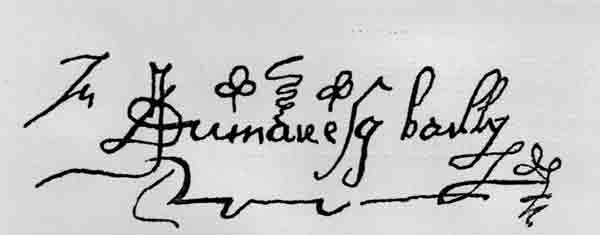 Jn Dumareſq bailly